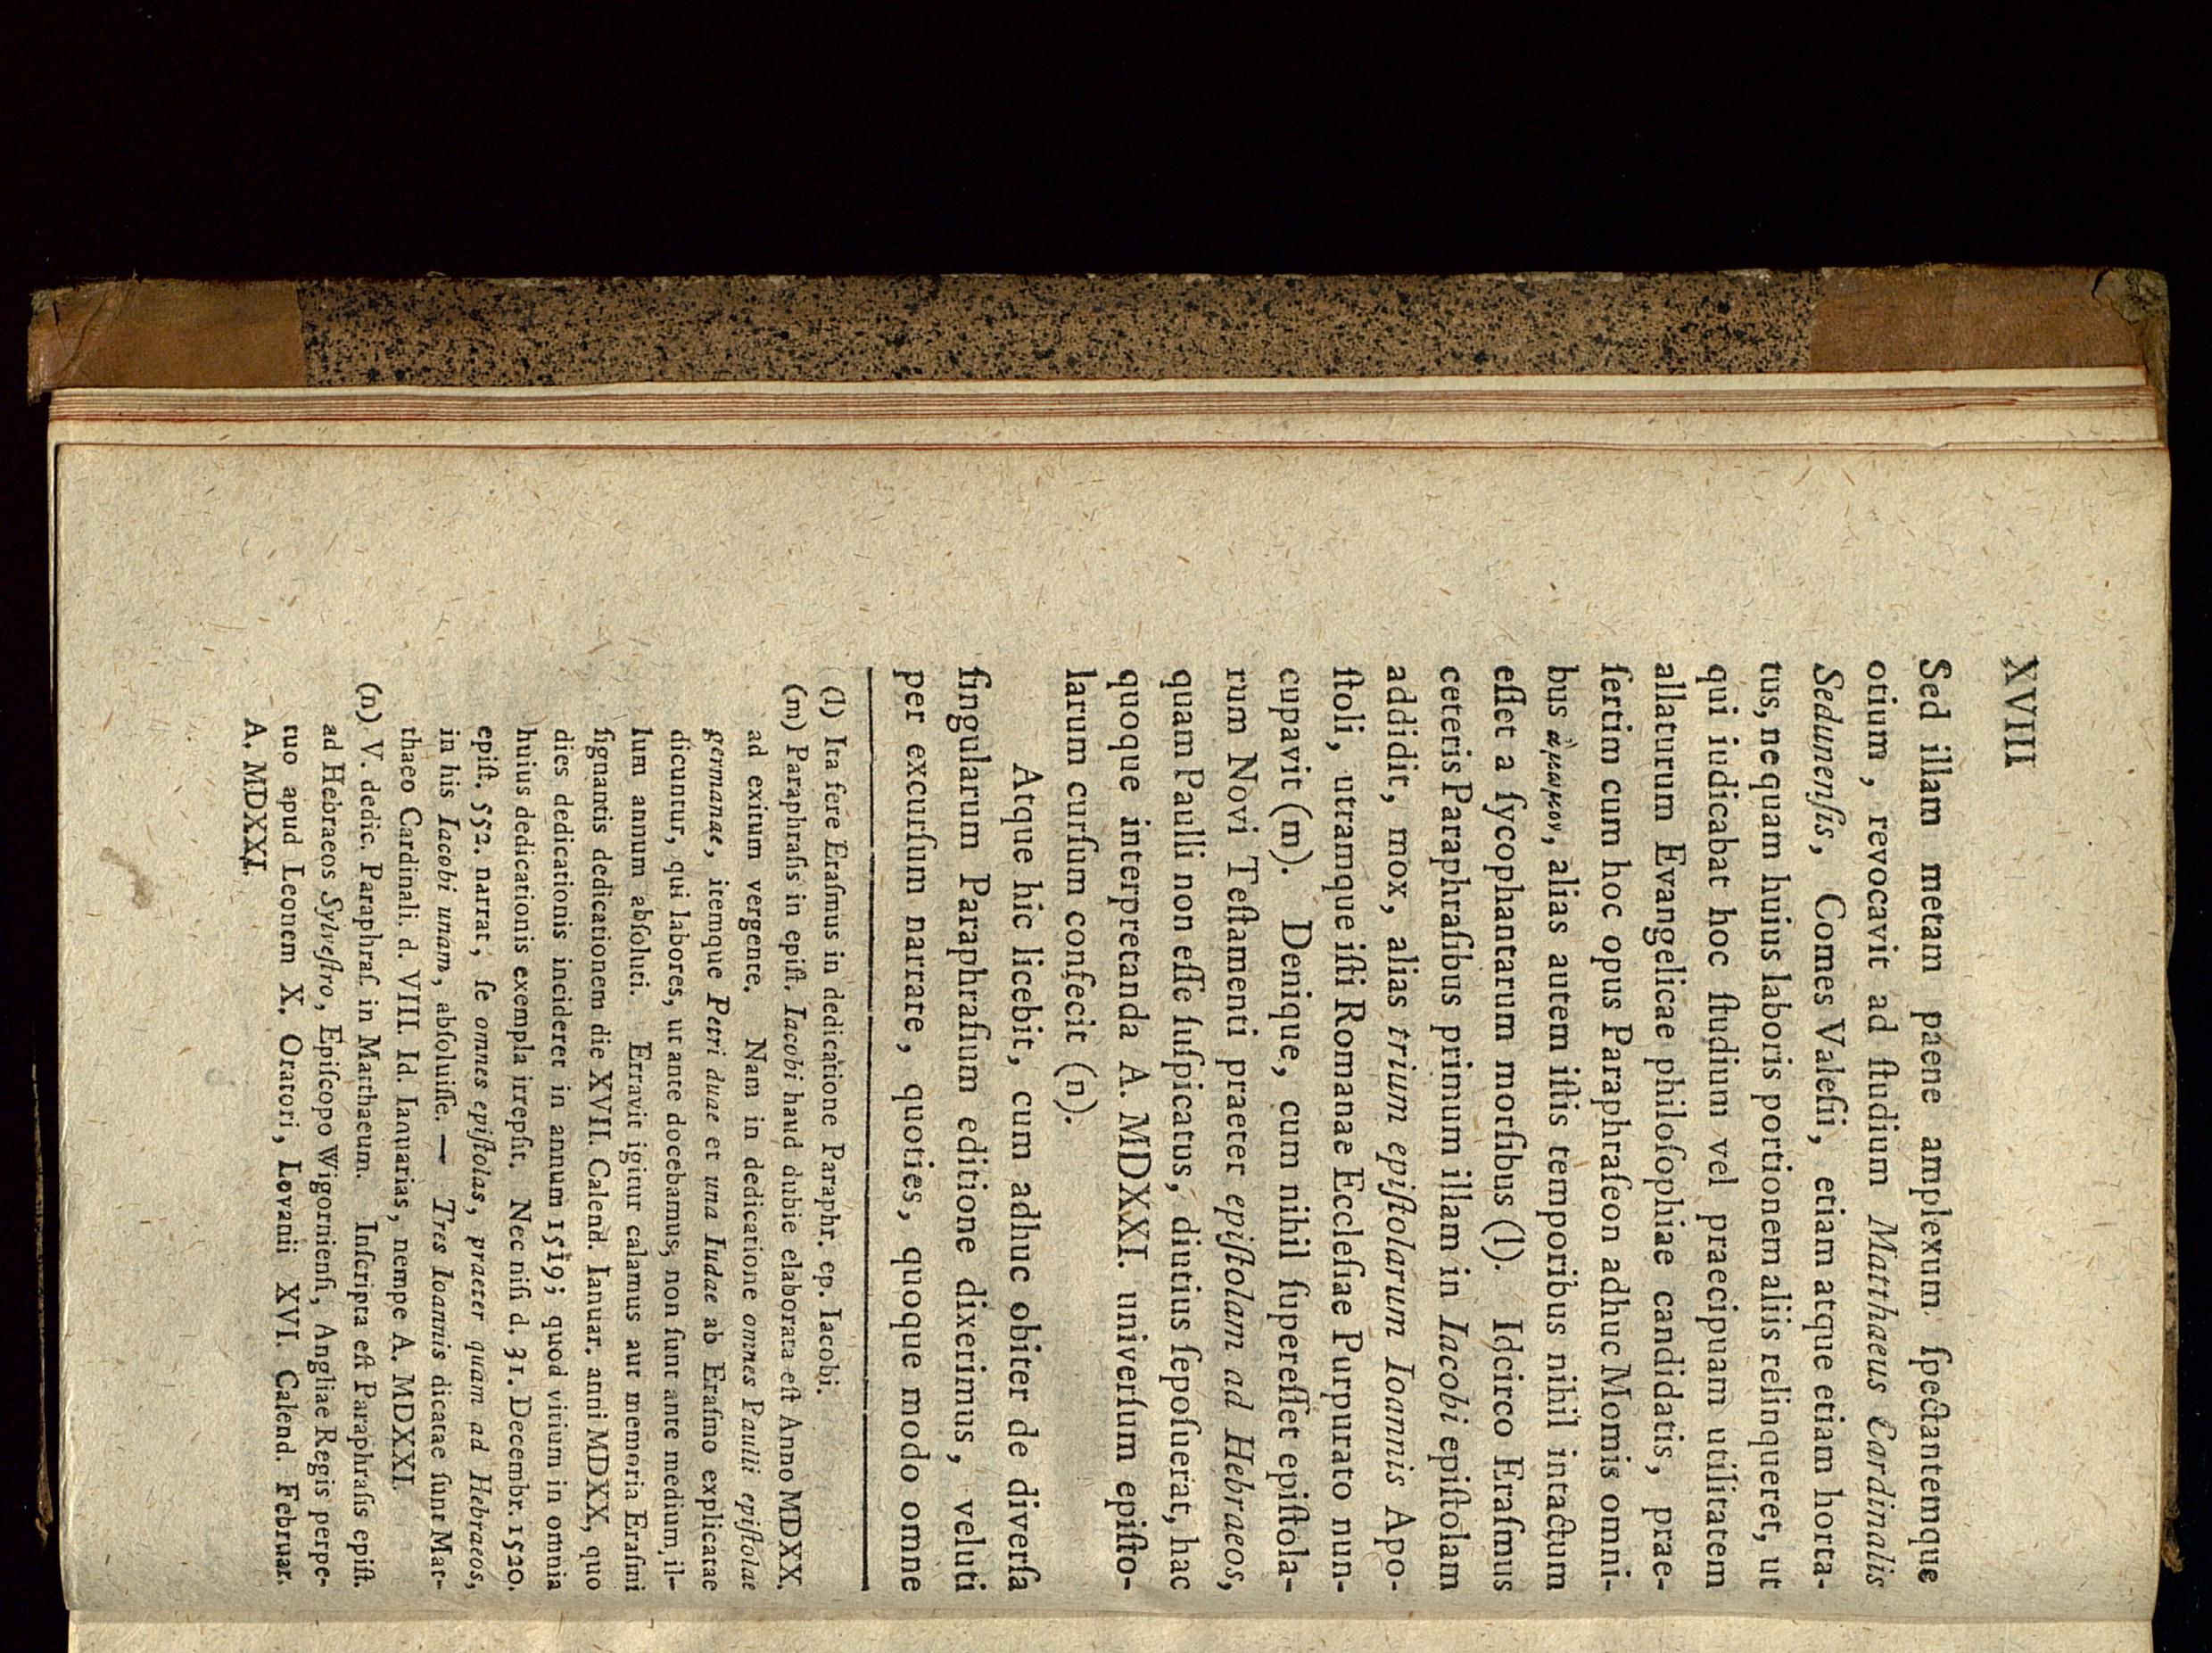 XVIII
Sed illam metam paene amplexum ſpectantemque
otium, revocavit ad ſtudium Matthaeus Cardinalis
Sedunenſis, Comes Valeſii, etiam atque etiam horta-
tus, ne quam huius laboris portionem aliis relinqueret, ut
qui iudicabat hoc ſtudium vel praecipuam utilitatem
allaturum Evangelicae philoſophiae candidatis, prae-
ſertim cum hoc opus Paraphraſeon adhuc Momis omni-
bus ἄμωμον, alias autem iſtis temporibus nihil intactum
eſſet a ſycophantarum morſibus (l). Idcirco Eraſmus
ceteris Paraphraſibus primum illam in Iacobi epiſtolam
addidit, mox, alias trium epiſtolarum Ioannis Apo-
ſtoli, utramque iſti Romanae Eccleſiae Purpurato nun-
cupavit (m). Denique, cum nihil ſupereſſet epiſtola-
rum Novi Teſtamenti praeter epiſtolam ad Hebraeos,
quam Paulli non eſſe ſuſpicatus, diutius ſepoſuerat, hac
quoque interpretanda A. MDXXI. univerſum epiſto-
larum curſum confecit (n).
Atque hic licebit, cum adhuc obiter de diverſa
ſingularum Paraphraſium editione dixerimus, veluti
per excurſum narrate, quoties, quoque modo omne
(l) Ita fere Eraſmus in dedicatione Paraphr. ep. Iacobi.
(m) Paraphraſis in epiſt. Iacobi haud dubie elaborata eſt Anno MDXX.
ad exitum vergente. Nam in dedicatione omnes Paulli epiſtolae
germanae, itemque Petri duae et una Iudae ab Eraſmo explicatae
dicuntur, qui labores, ut ante docebamus, non ſunt ante medium il-
lum annum abſoluti. Erravit igitur calamus aut memoria Eraſmi
ſignantis dedicationem die XVII. Calend. Ianuar. anni MDXX, quo
dies dedicationis incideret in annum 1519; quod vitium in omnia
huius dedicationis exempla irrepſit. Nec niſi d. 31. Decembr. 1520.
epiſt. 552. narrat, ſe omnes epiſtolas, praeter quam ad Hebraeos,
in his Iacobi unam, abſoluiſſe. — Tres Ioannis dicatae ſunt Mat-
thaeo Cardinali. d. VIII. Id. Ianuarias, nempe A. MDXXI.
(n) V. dedic. Paraphraſ. in Matthaeum. Inſcripta eſt Paraphraſis epiſt.
ad Hebraeos Sylveſtro, Epiſcopo Wigornienſi, Angliae Regis perpe-
tuo apud Leonem X. Oratori, Lovanii XVI. Calend. Februar.
A. MDXXI.